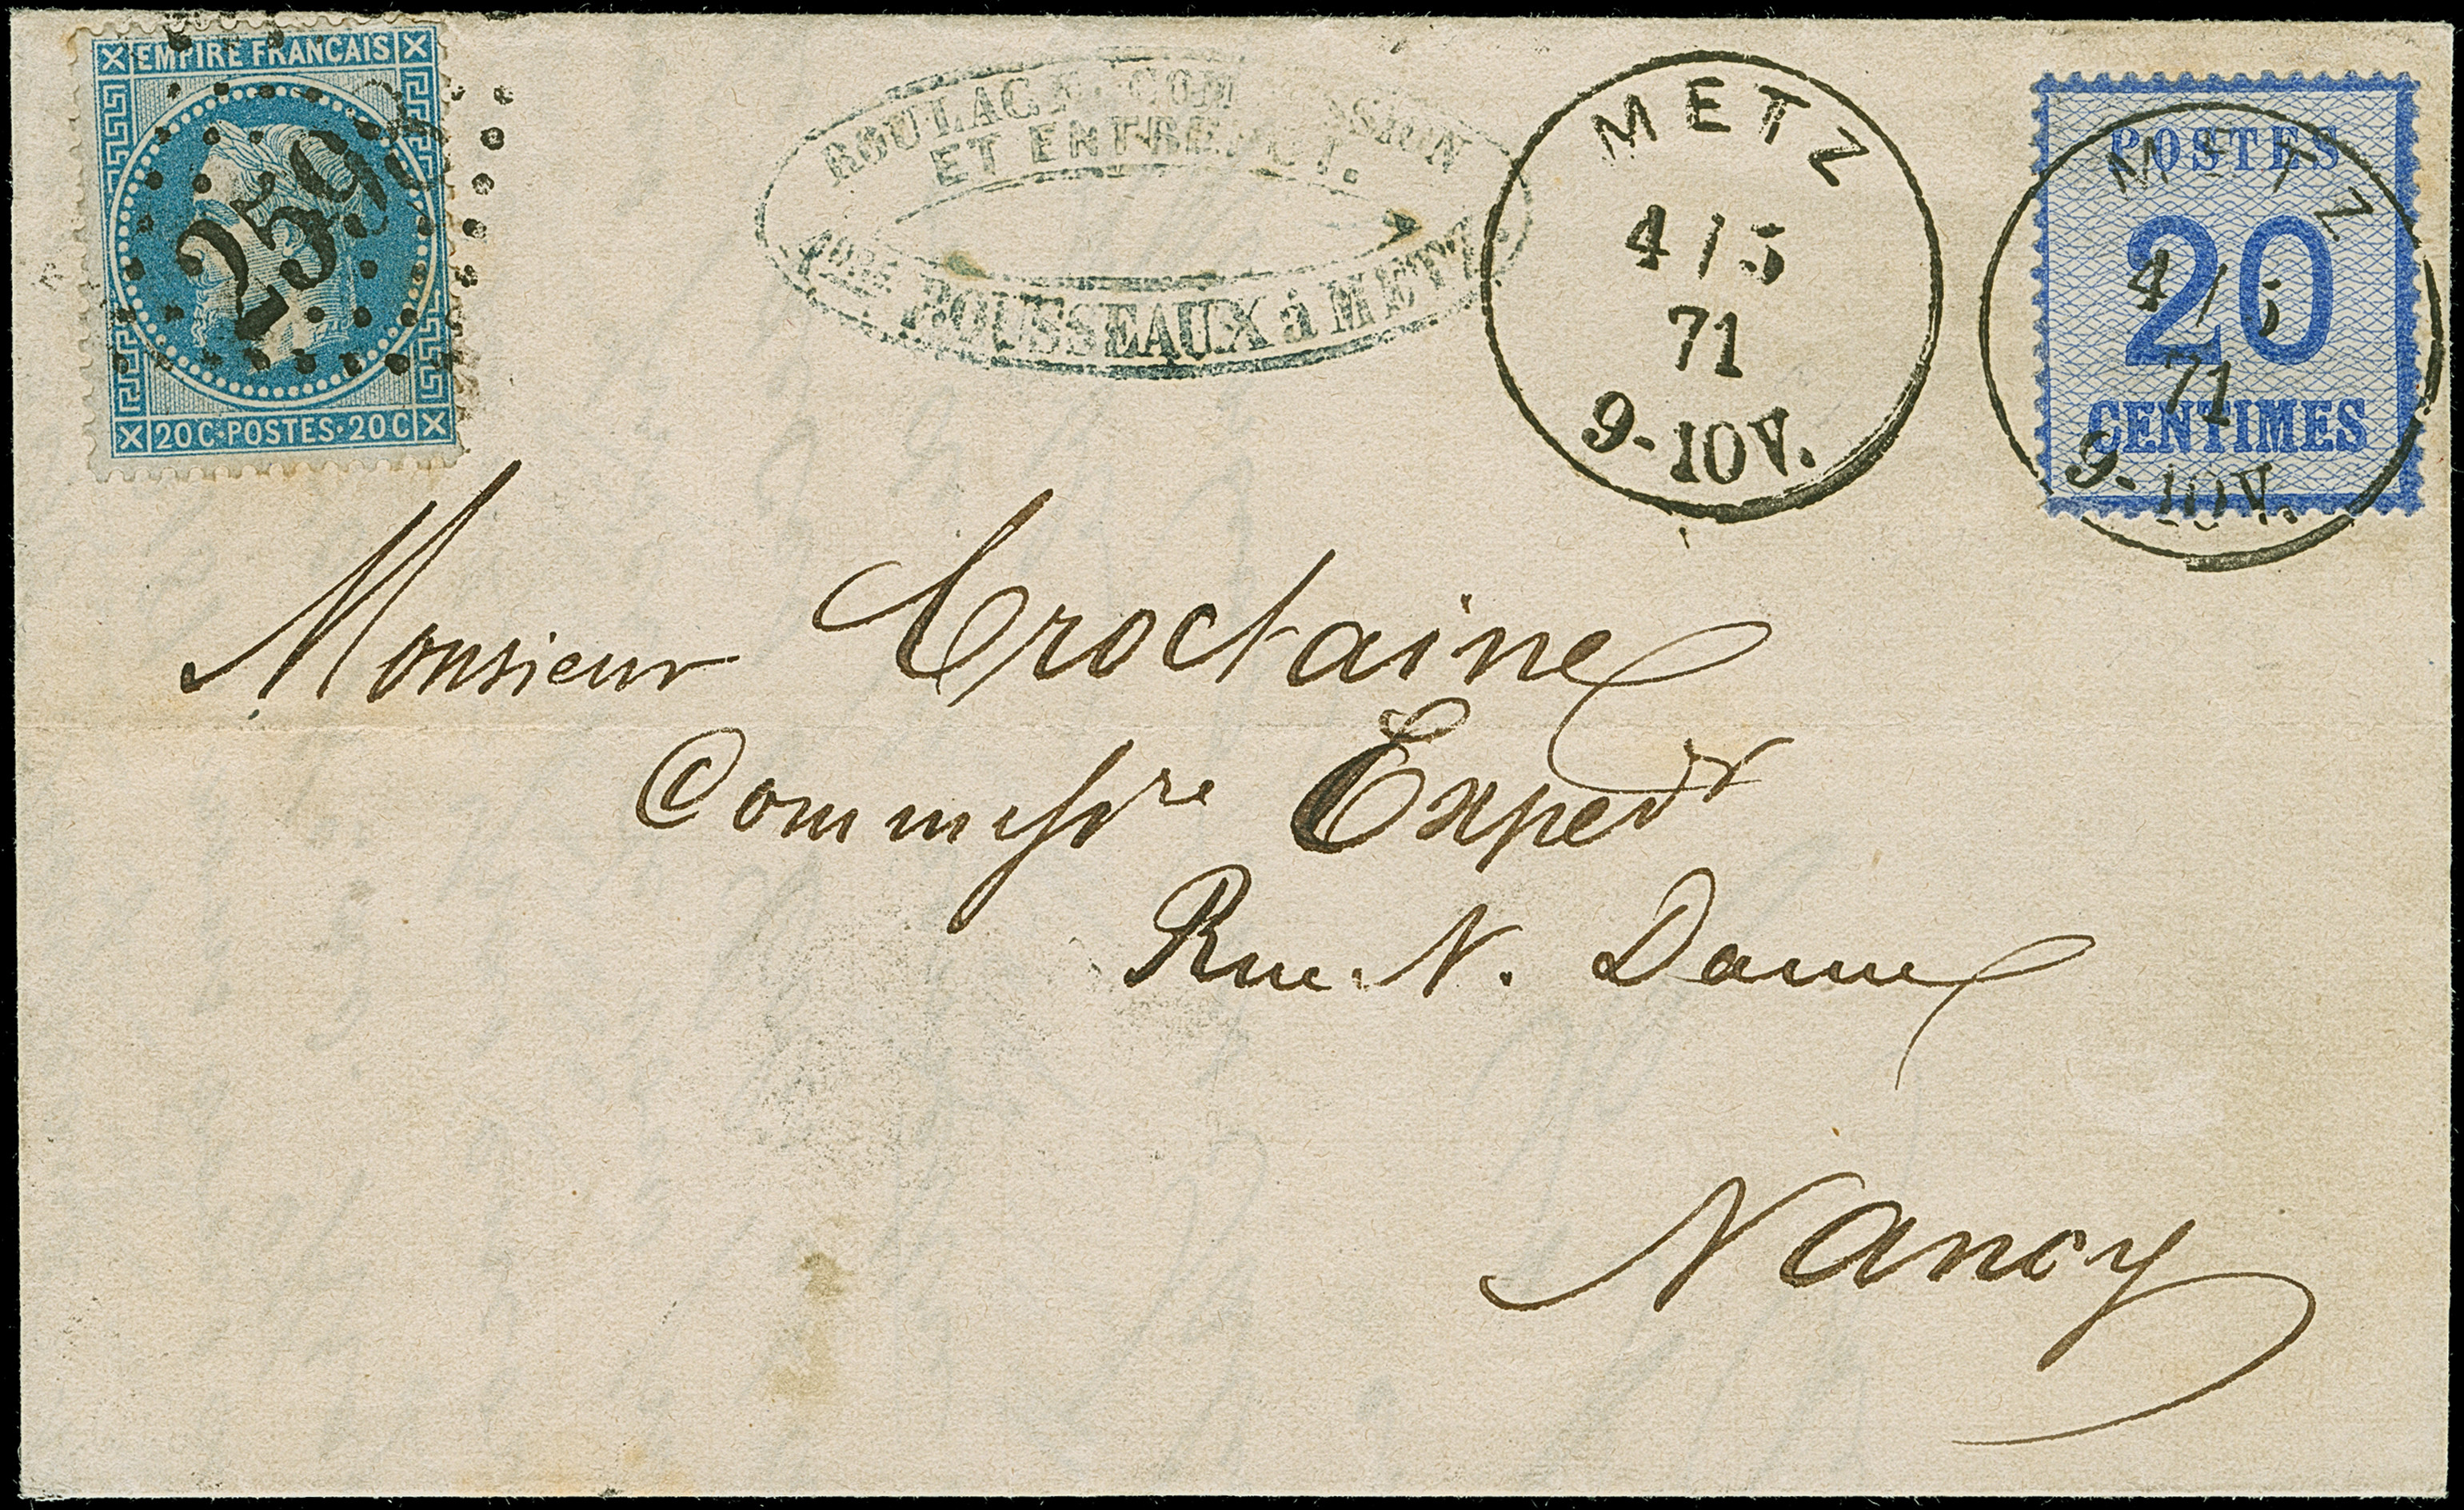 EMPIRE FRANCAIS
2598
20C·POSTES·20C
ROULAGE, COMMISSION
ET ENTREPOT.
ROUSSEAUX à METZ.
METZ
4/5
71
9-10V.
POSTES
20
CENTIMES
METZ
4/5
71
9-10V.
Monsieur Croctaine
Commissre Expedr
Rue N. Dame
Nancy